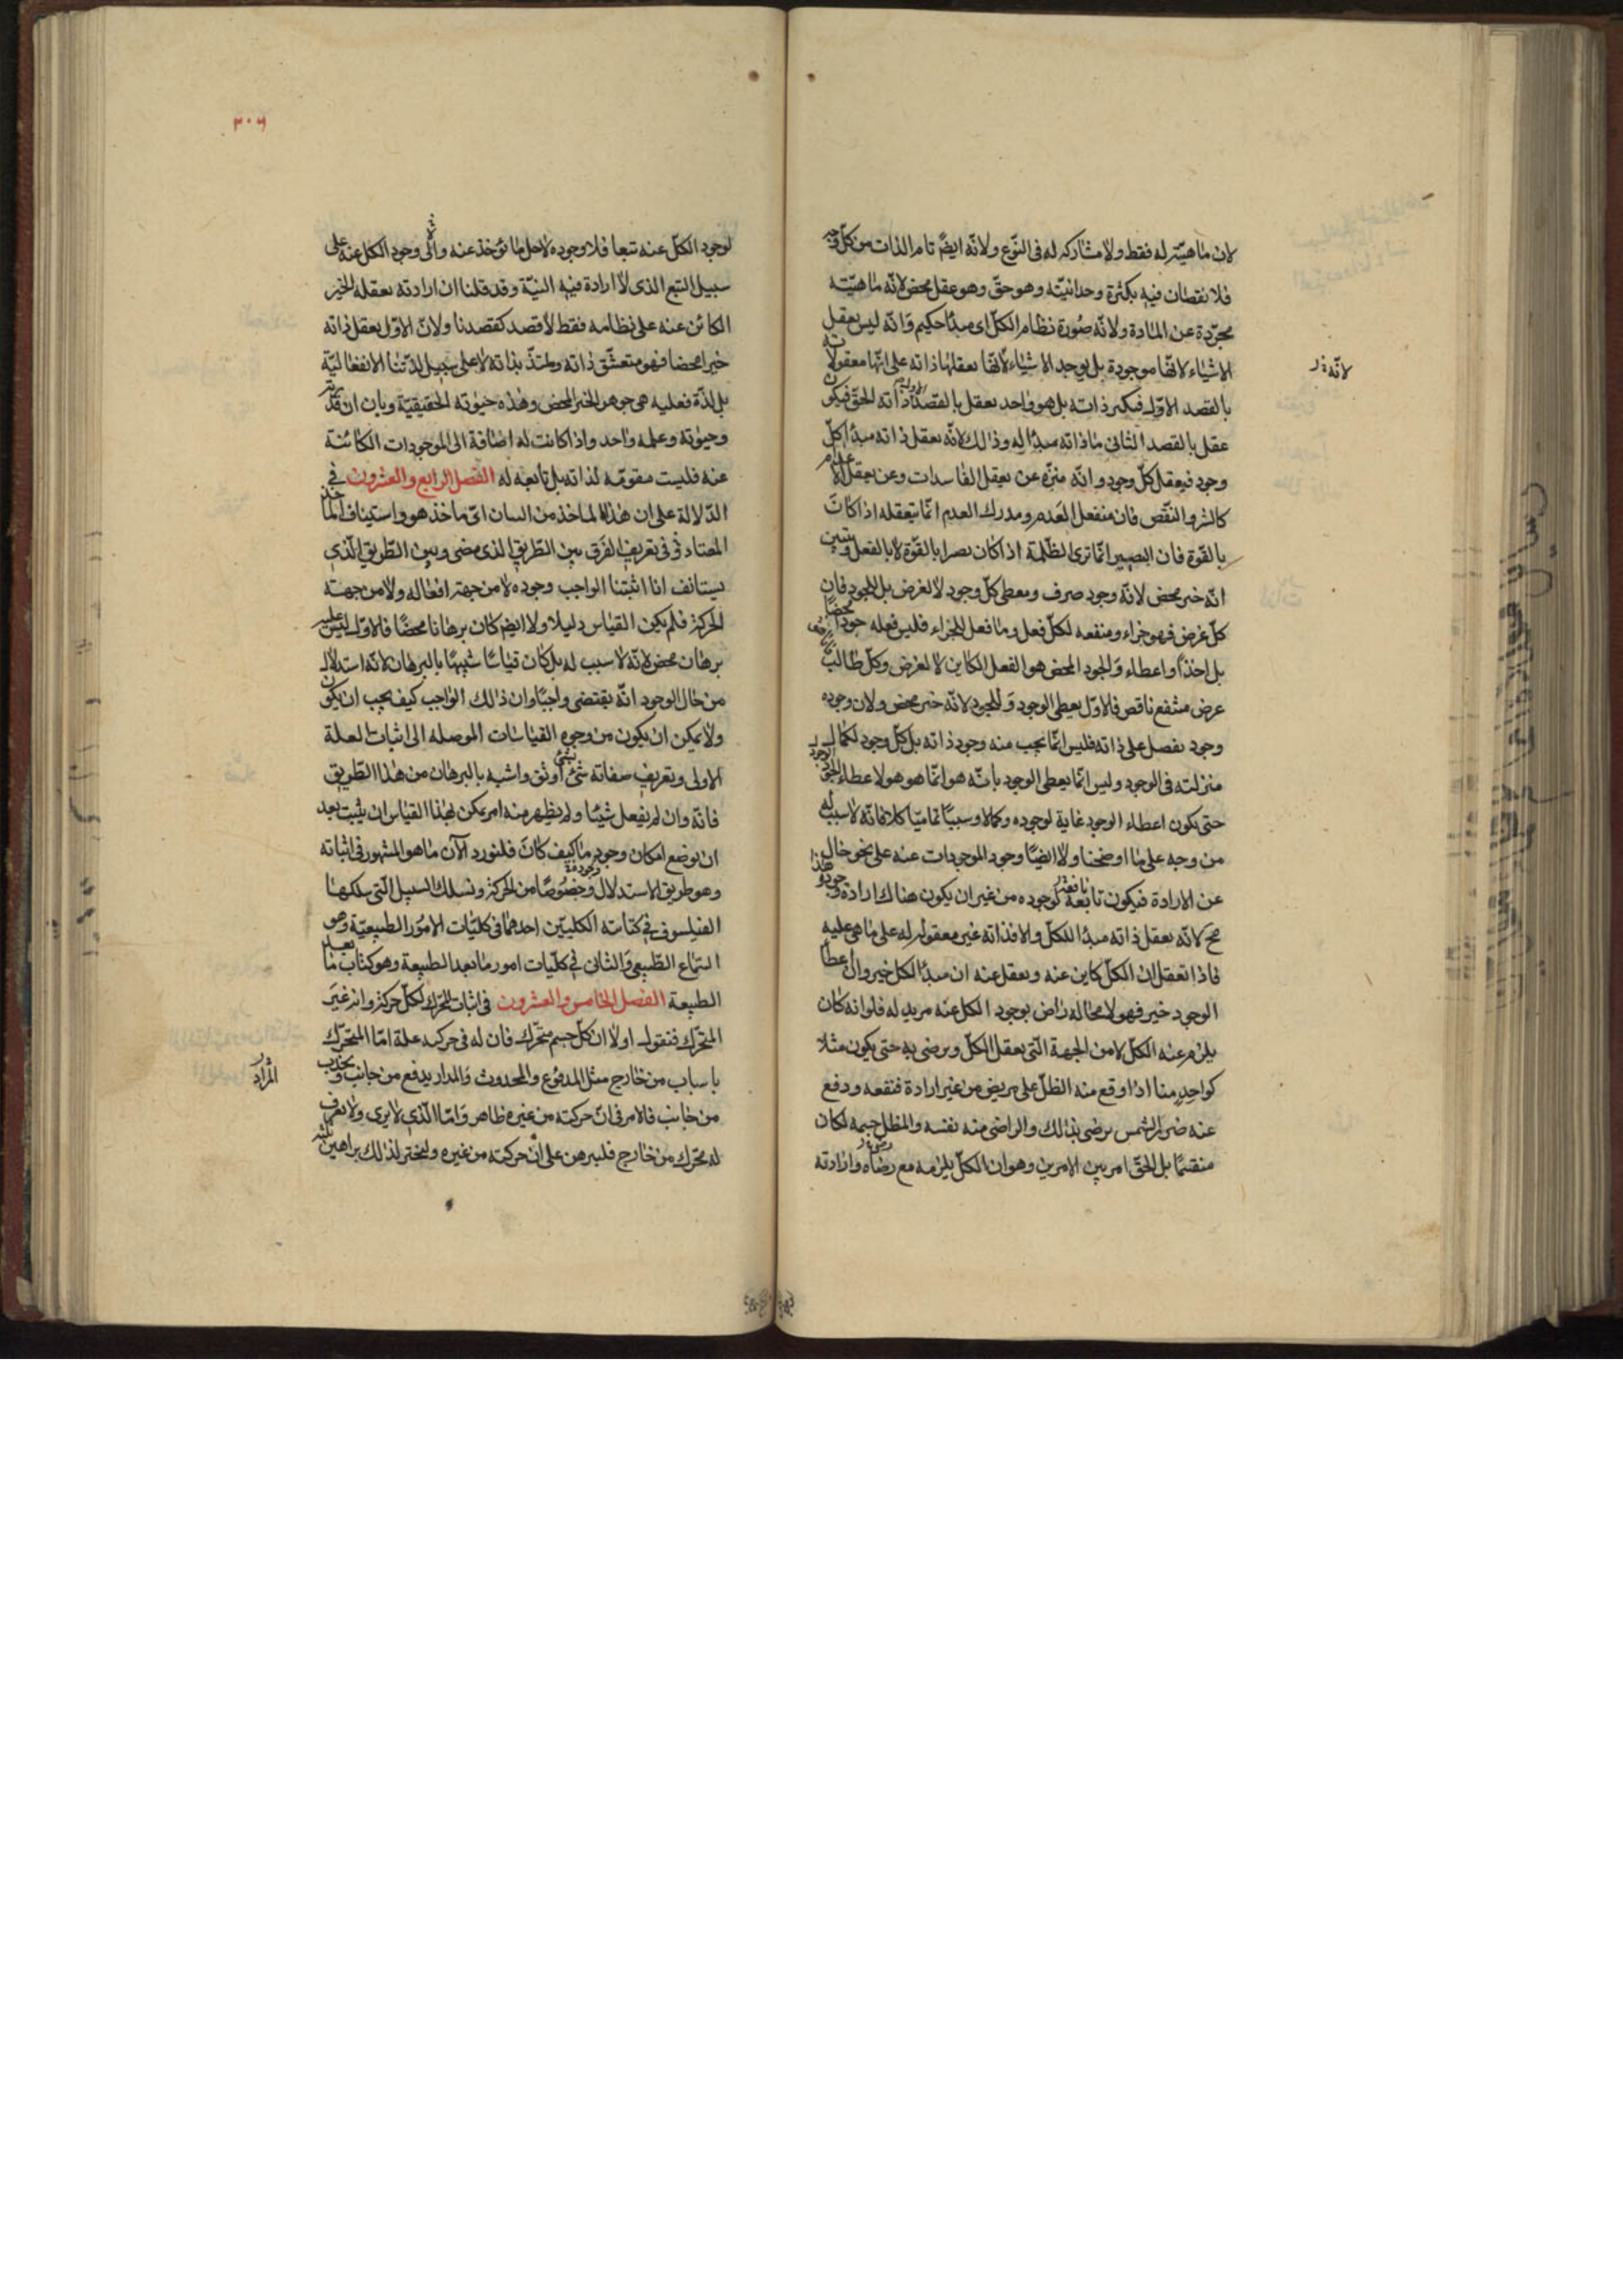 لان ماهيته له فقط ولا مشاركه له فى النّوع ولانّه ايضً تام الذات من كلّ وجه
فلا نقصان فيه بكثرة وحدانيّته وهو حقّ وهو عقل محض لانّه ماهيّته
مجرّدة عن المادة ولانّه صُورة نظام الكلّ اى مبدأ حكيم وَانّه ليس يعقل
الاشياء لانّها موجودة بل توجد الاشياء لانّها يعقلها ذاته على انّها معقولاته
لانّه
بالقصد الاوّل فيكبر ذاته بل هو واحد يعقل بالقصد ذاته الحقّ فيكون
عقل بالقصد الثانى ماذاته مبدأ له وذالك لانّه يعقل ذاته مبدأ كلّ
وجود فيعقل كلّ وجود وانّه منزّه عن يعقل الفاسدات وعن يعقل الاعدام
كالشر والنقص فان منفعل العدم ومدرك العدم انّما يتعقله اذا كان
بالقوة فان البصير انّما ترى الظّلمة اذا كان بصرا بالقوّة لا بالفعل وتبين
انّه خير محض لانّه وجود صرف ويعطى كلّ وجود لا لغرض بل للجود فان
كلّ غرض فهو جزاء ومنفعه لكلّ فعل وما فعل للجزاء فليس فعله جودا محضا
بل اخذًا واعطاء وَالجود المحض هو الفعل الكاين لا لغرض وكلّ طالب
عرض منتفع ناقص فالاوّل يعطى الوجود وَالجود لانّه خير محض ولان وجوده
وجود يفضل على ذاته فليس انّما يجب منه وجود ذاته بل كلّ وجود لكمال
منزلته فى الوجود وليس انّما يعطى الوجود بانّه هو انّما هو هو لاعطاء الوجود
حتى يكون اعطاء الوجود غاية لوجوده وكمالا وسببيًا تماميّا كلا فانّه لا سبب له
من وجه على ما اوضحنا ولا ايضًا وجود الموجودات عنه على نحو خال
عن الارادة فيكون تابعة لوجوده من غير ان يكون هناك ارادة وجوده هذا
مح لانّه يعقل ذاته مبدأ للكلّ والا فذاته غير معقولة له على ما هى عليه
فاذا تعقل ان الكلّ كاين عنه ويعقل عنه ان مبدأ الكل خير وان اعطا
الوجود خير فهو لا محاله راض بوجود الكل عنه مريد له فلو انه كان
يلزم عنه الكلّ لا من الجهة الّتى يعقل الكلّ ويرضى به حتى يكون مثلا
كواحدٍ منا اذا وقع منه الظلّ على مريض من غير ارادة فنفعه ودفع
عنه ضرر الشمس يرضى بذالك والراضى منه نفسه والمظل جسمه لكان
منقسمًا بل الحقّ امر بين الامرين وهو ان الكلّ يلزمه مع رضاه وارادته
٣٠٦
لوجود الكلّ عنه تبعا فلا وجوده لاجل ما يؤخذ عنه ولا وجود الكل عنه على
سبيل التبع الذى لا ارادة فيه البتّة وقد قلنا ان ارادته يعقله الخير
الكائن عنه على نظامه فقط لا قصد كقصدنا ولانّ الاوّل يعقل ذاته
خيرا محضا فهو متعشّق ذاته وملتذّ بذاته لا على سبيل لذّتنا الانفعاليّة
بل لذّة فعليه هى جوهر الخير المحض وهذه حيوته الحقيقيّة وبان ان قدرته
وحيوته وعلمه واحد واذا كانت له اضافة الى الموجودات الكائنة
عنه فليست مقومّه لذاته بل تابعه له الفصل الرابع والعشرون فى
الدّلالة على ان هذا الماخذ من البيان اىّ ماخذ هو واستيناف الماخذ
المعتاد فى تعريف الفرق بين الطّريق الذى مضى وبين الطّريق الّذى
يستانف انا اثبتنا الواجب وجوده لا من جهة افعاله ولا من جهة
الحركة فلم يكن القياس دليلا ولا ايضً كان برهانا محضًا فالاوّل ليس عليه
برهان محض لانّه لا سبب له بل كان قياسًا شبيهًا بالبرهان لانّه استدلال
من حال الوجود انّه يقتضى واجبًا وان ذالك الواجب كيف يجب ان يكون
ولا يمكن ان يكون من وجوه القياسات الموصله الى اثبات العلة
الاولى وتعريف صفاته شئ اوثق واشبه بالبرهان من هذا الطّريق
فانّه وان لم يفعل شيئًا ولم يظهر منه امر يمكن بهذا القياس ان يثبت بعد
ان يوضع امكان وجود ما كيف كان فلنورد الآن ما هو المشهور فى اثباته
وهو طريق الاستدلال وخصُوصًا من الحركة ونسلك السبيل الّتى سلكها
الفيلسوف فى كتابيه الكليّين احدهما فى كليّات الامور الطبيعيّة وهو
السّماع الطّبيعى وَالثانى فى كلّيات امور ما بعد الطبيعة وهو كتاب ما بعد
الطبيعة الفصل الخامس والعشرون فى اثبات المحرّك لكلّ حركة وانه غير
المتحرّك فنقول اولا ان كلّ جسم متحرّك فان له فى حركته علة امّا المتحرّك
باسباب من خارج مثل المدفوع والمجذوب وَالمدار يدفع من جانب ويجذب
من جانب فالامر فى انّ حركته من غيره ظاهر وَامّا الّذى لا يرى ولا يعرف
له محرّك من خارج فلنبرهن على انّ حركته من غيره ولنختر لذالك براهين ثلثة